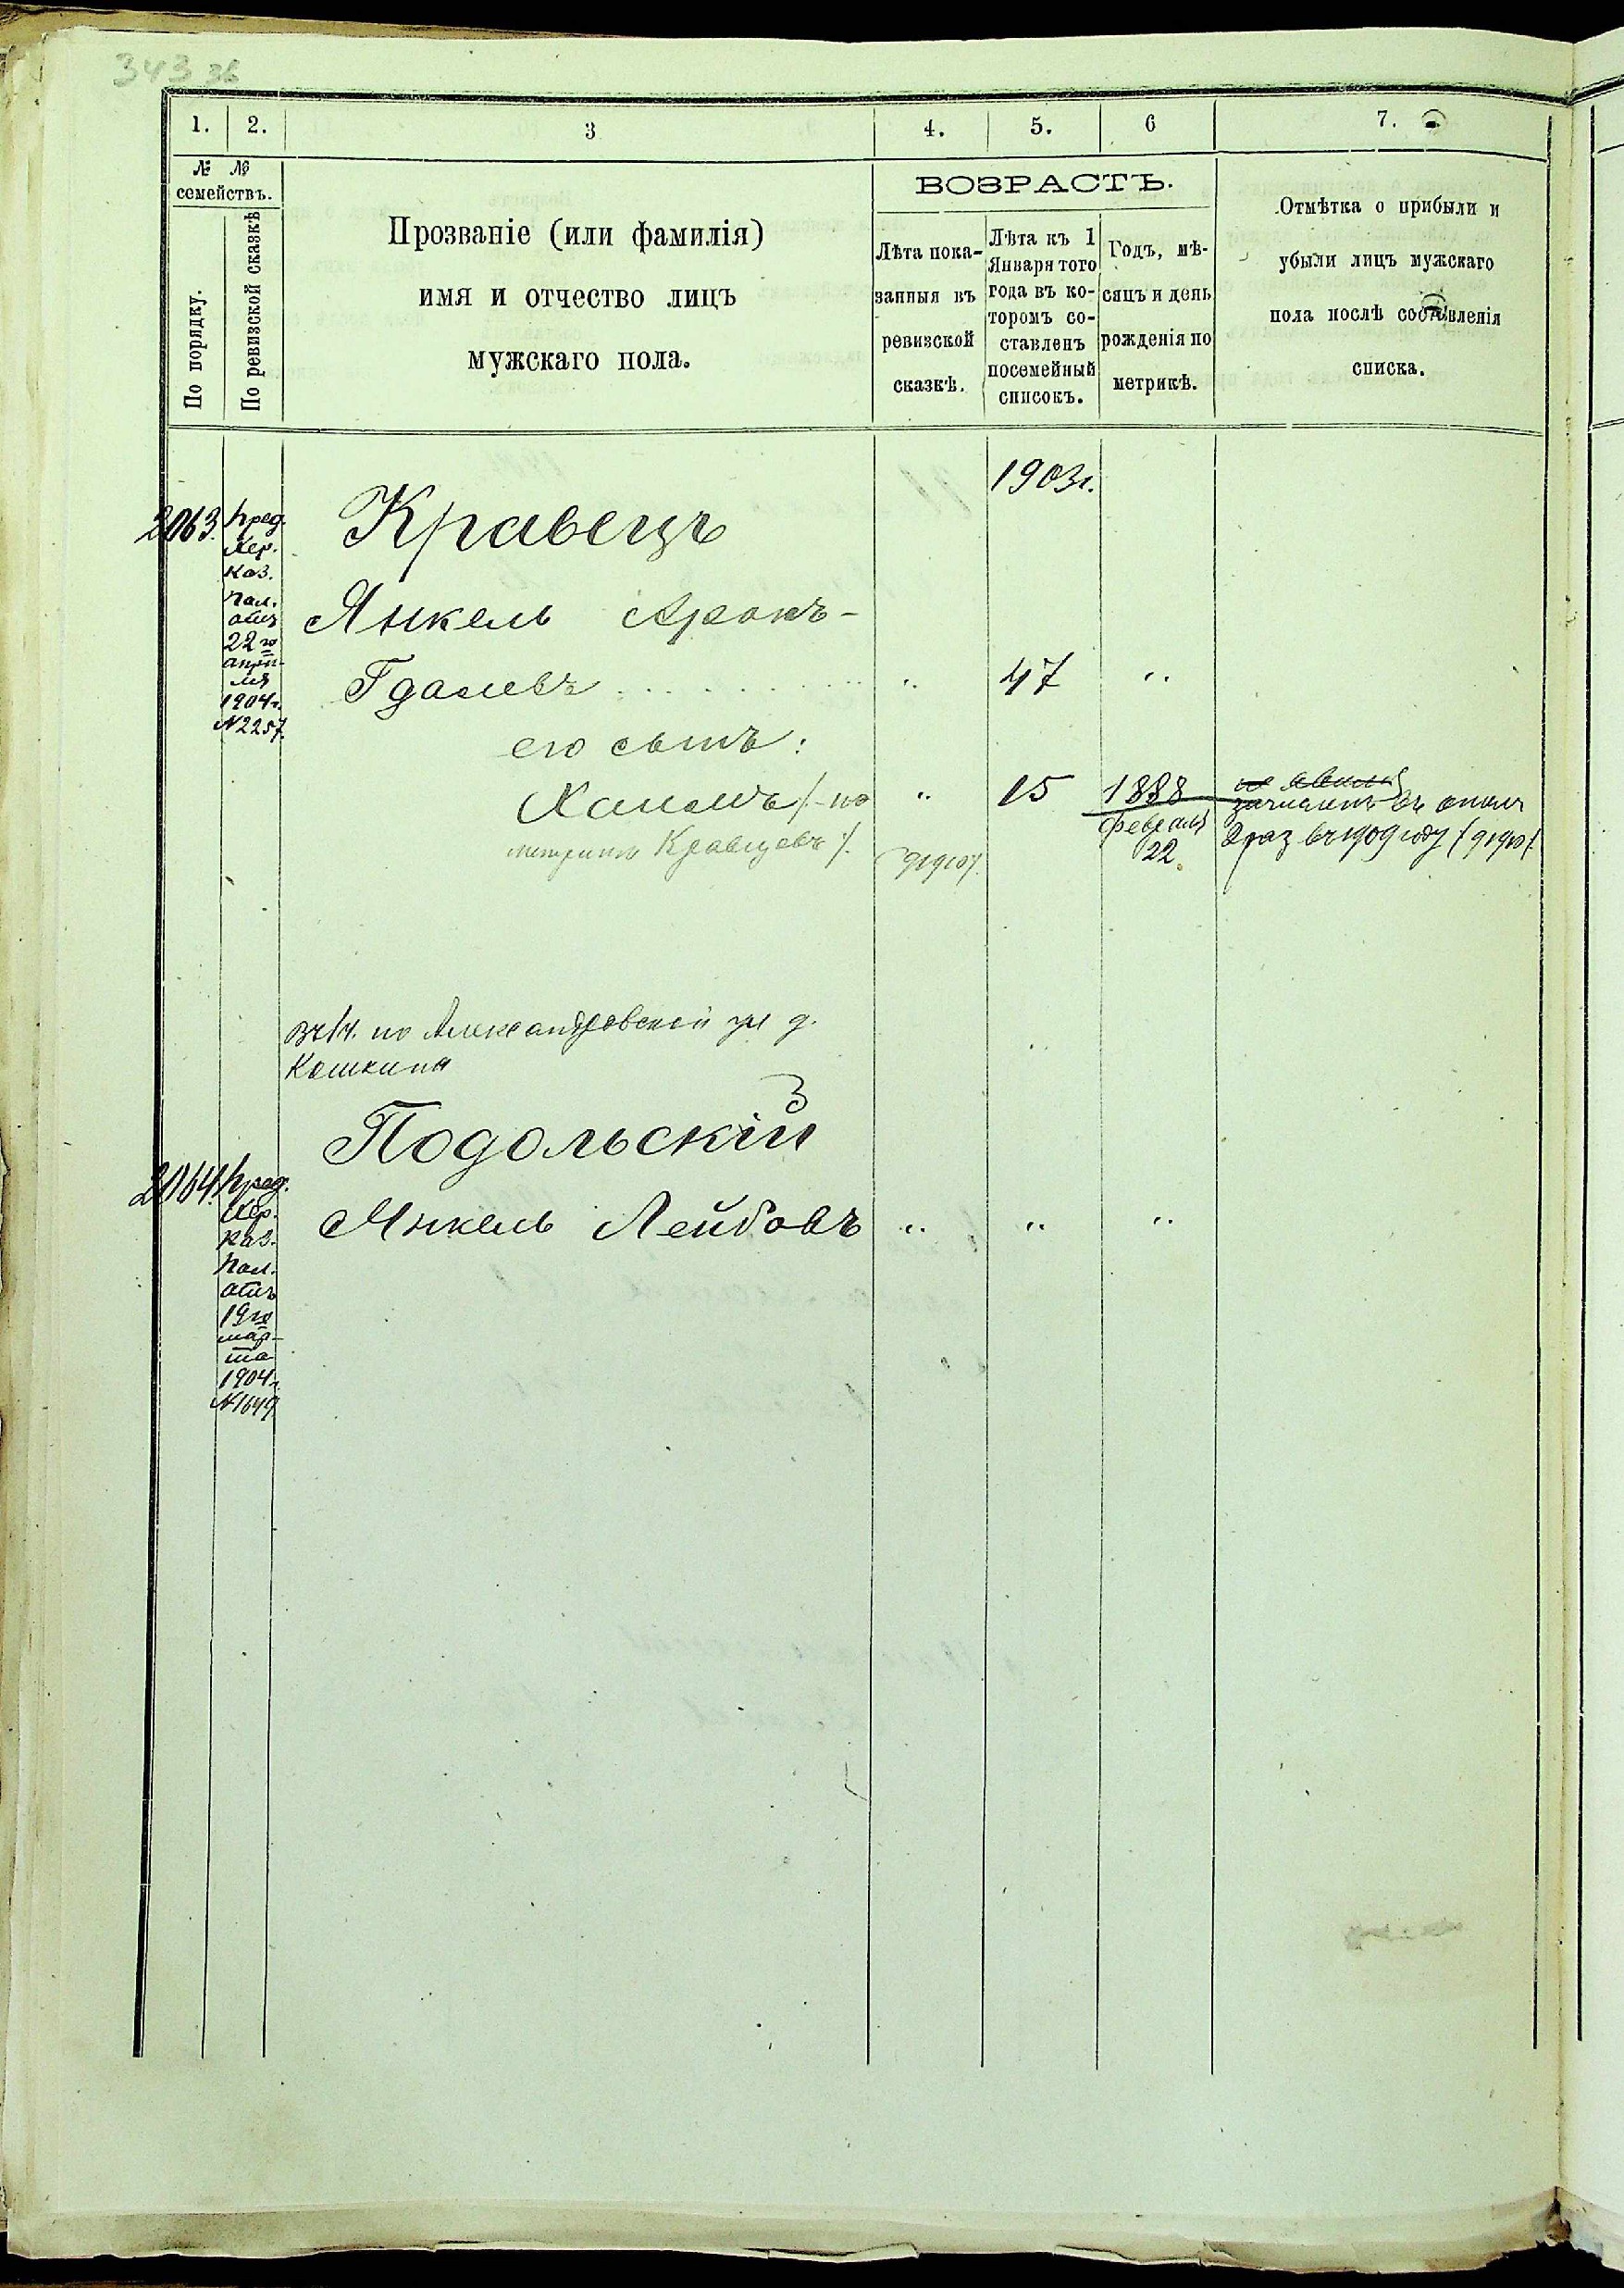 343 36
1. 2. 3 4. 5. 6 7.
№ №
семействъ.
По порядку.
По ревизской сказкѣ
Прозваніе (или фамилія)
имя и отчество лицъ
мужскаго пола.
ВОЗРАСТЪ.
Лѣта пока-
занныя въ
ревизской
сказкѣ.
Лѣта къ 1
Января того
года въ ко-
торомъ со-
ставленъ
посемейный
списокъ.
Годъ, мѣ-
сяцъ и день
рожденія по
метрикѣ.
Отмѣтка о прибыли и
убыли лицъ мужскаго
пола послѣ составленія
списка.
1903г.
2063.
Пред.
Хер.
Каз.
Пал.
отъ
22го
апрѣ-
ля
1904г.
N2257.
Кравецъ
Янкель Аронъ-
Гдалевъ . . . . . . . . . . " 47 "
его сынъ:
Хаимъ /-по " 15 1888
метрикѣ Кравцовъ/. Февраля
22.
не явился
зачисленъ въ опол
2 раз въ 1909 году
Въ 1ч. по Александровской ул д.
Кошкина
Подольскій
2064.
Пред.
Хер.
Каз.
Пал.
отъ
19го
мар-
та
1904г.
N1649
Янкель Лейбовъ " " "